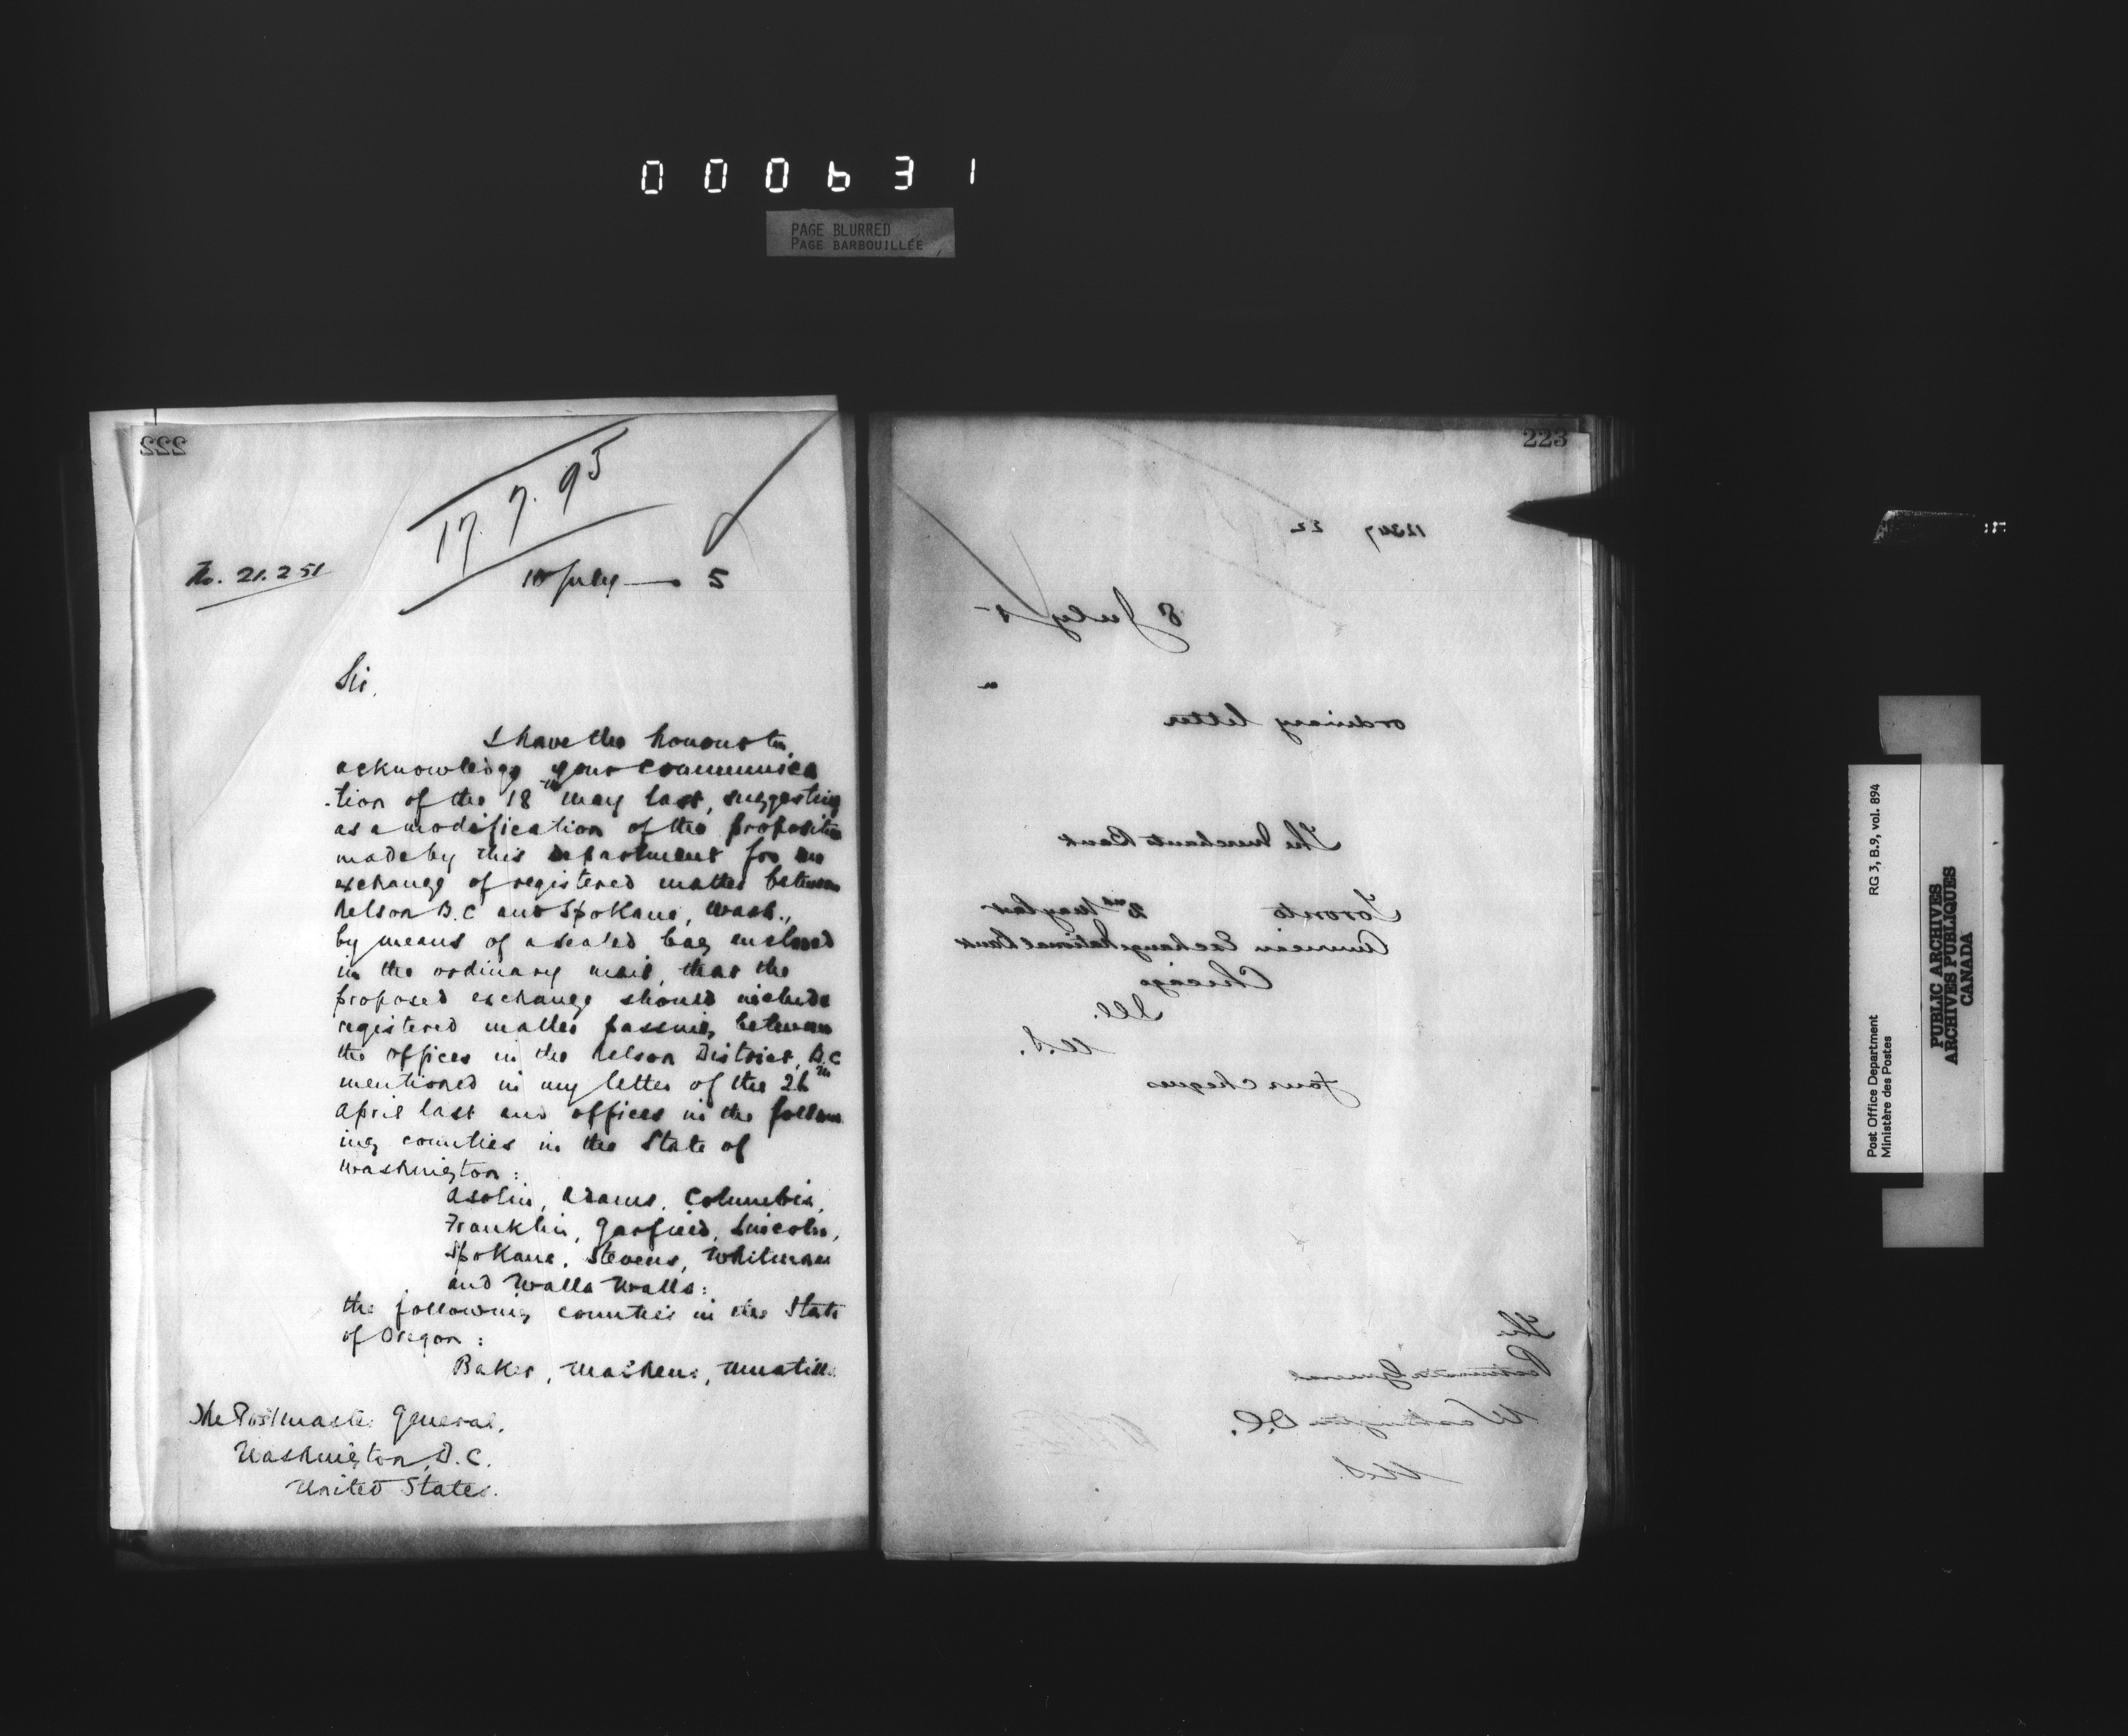 000631
PAGE BLURRED
PAGE BARBOUILLÉE
222
17. 7. 95
No. 21.251
10 July — 5
Sir,
I have the honour to
acknowledge your communica
-tion of the 18th May last, suggesting
as a modification of the proposition
made by this department for an
exchange of registered matter between
Nelson B.C and Spokane, Wash.,
by means of a sealed bag enclosed
in the ordinary mail, that the
proposed exchange should include
registered matter passing between
the offices in the Nelson District, B.C
mentioned in my letter of the 26th
April last and offices in the follow
ing counties in the State of
Washington:
Asotin, Adams, Columbia,
Franklin, Garfield, Lincoln,
Spokane, Stevens, Whitman
and Walla Walla:
the following counties in the State
of Oregon:
Baker, Umatilla
The Postmaster General,
Washington, D.C.
United States.
223
12347 22
8 July 5
ordinary letter
The Merchants Bank
Toronto 2nd May last
American Exchange National Bank
Chicago
Ill.
U.S.
four cheques
The
Postmaster General
Washington D.C.
U.S.
Post Office Department
Ministère des Postes
RG 3, B.9, vol. 894
PUBLIC ARCHIVES
ARCHIVES PUBLIQUES
CANADA